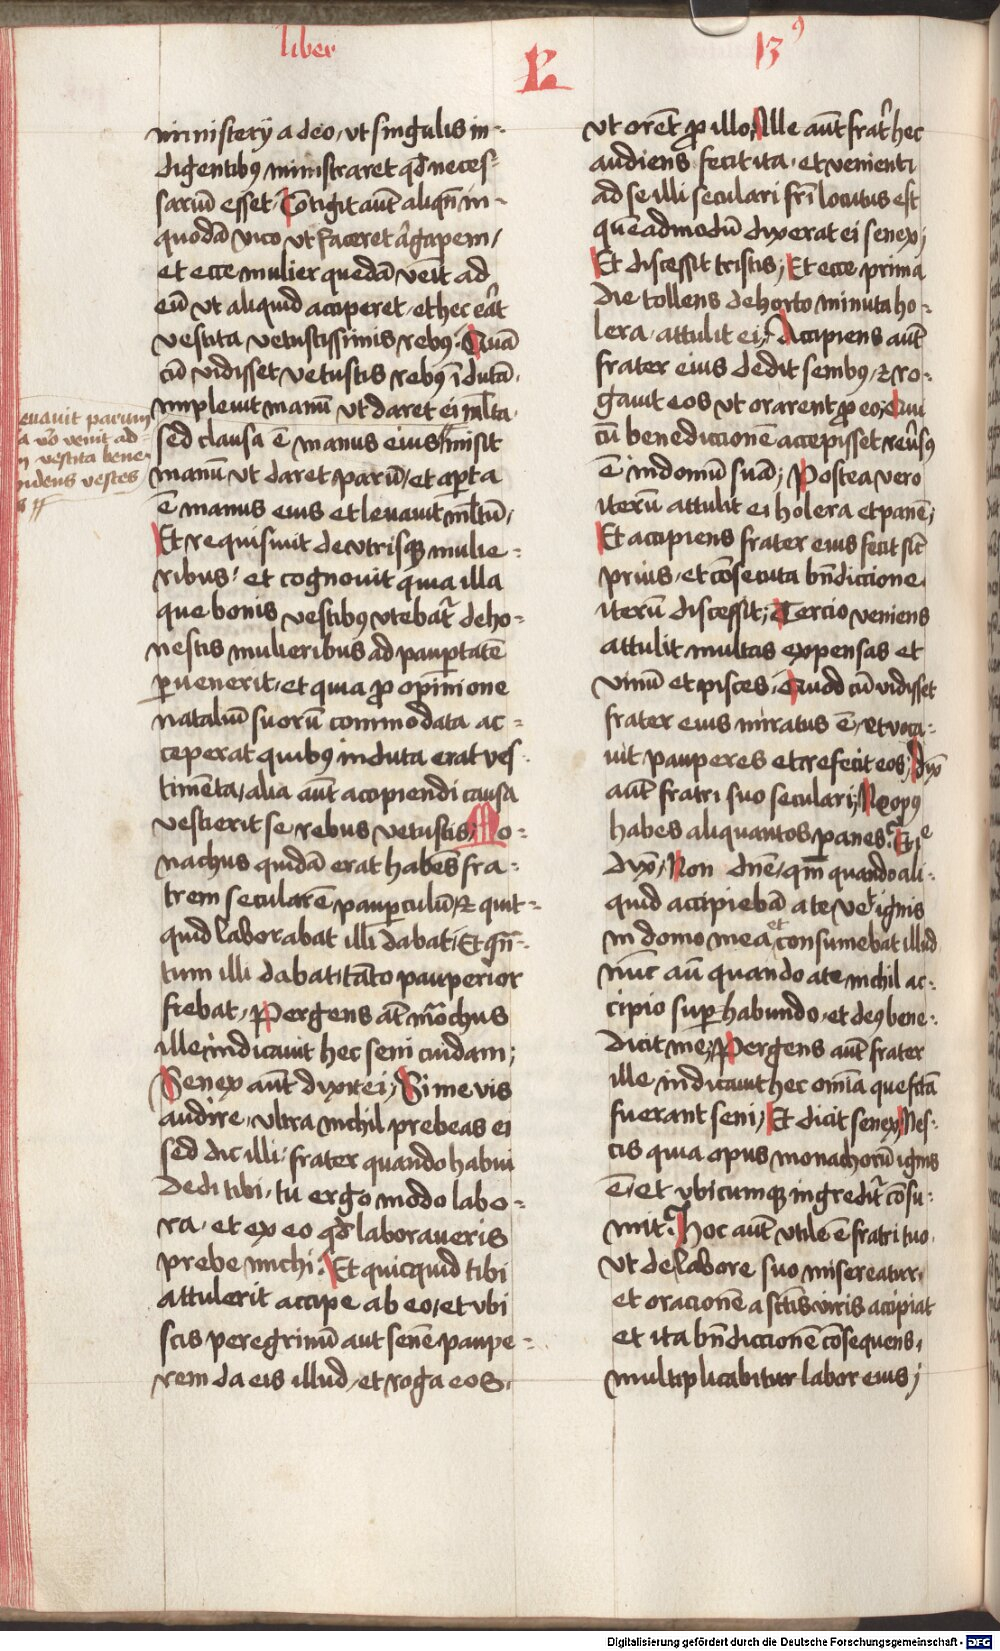 liber
R
13⁹
ministerij a deo, vt singulis in-
digentibꝯ ministraret qđ neces-
sariū esset. Cōtigit aūt aliqn̄ in-
quodā vico vt faceret agapem,
et ecce mulier quedā venit ad
eū vt aliquid acciperet, et hec erat
vestita vetustissimis rebꝯ. Quā
cū vidisset vetustis rebꝯ īdutā.
impleuit manū vt daret ei ml̄ta.
sed clausa ē manus eius misit
manū vt daret parū, et apta
ē manus eius et leuauit ml̄tū,
Et requisiuit de vtrisqꝫ mulie-
ribus: et cognouit quia illa
que bonis vestibꝯ vtebat̄ de ho-
nestis mulieribus ad paupertatē
peruenerit, et quia pro opinione
nataliū suorū commodata ac-
ceperat quibꝯ induta erat ves-
timēta, alia aūt accipiendi causa
vestierit se rebus vetustis, Mo-
nachus quidā erat habēs fra-
trem secularē pauperculū, et quit-
quid laborabat illi dabat. Et qn̄-
tum illi dabat tāto pauperior
fiebat, Pergens at̄ mōchus
ille indicauit hec seni cuidam;
Senex aūt dixit ei, Si me vis
audire, vltra nichil prebeas ei
sed dic illi: frater quando habui
dedi tibi, tu ergo modo labo-
ra, et ex eo qđ laboraueris
prebe michi. Et quicquid tibi
attulerit accipe ab eo, et vbi
scis peregrinū aut senē paupe-
rem da eis illud, et roga eos.
euauit parum
a v̊o venit ad
vestita bene
videns vestes
vt orēt pro illo; Ille aūt frat̄ hec
audiens fecit ita, et venienti
ad se illi seculari fr̄i locutus est
quēadmodū dixerat ei senex;
Et discessit tristis; Et ecce prima
die tollens de horto minuta ho-
lera, attulit ei; Accipiens aūt
frater eius dedit senibꝯ, et ro-
gauit eos vt orarent pro eo, Qui
cū benediccionē accepisset reūsꝯ
ē in domū suā; Postea vero
iterū attulit ei holera et panē;
Et accipiens frater eius fecit sic̄
prius, et cōsecuta bn̄diccione
iterū discessit; Tercio veniens
attulit multas expensas et
vinū et pisces. Quod cū vidisset
frater eius miratus ē, et voca-
uit pauperes et refecit eos; Dix̄
aūt fratri suo seculari, Nō opꝯ
habes aliquantos panes. Et ille
dix̄, Non dn̄e, qm̄ quando ali-
quid accipiebā a te velut ignis
in domo mea et consumebat illud
nūc aū quando a te nichil ac-
cipio superhabundo, et deꝯ bene-
dicit me; Pergens aūt frater
ille indicauit hec om̄ia que fc̄ta
fuerant seni; Et dicit senex, Nes-
cis quia opus monachorū ignis
ē, et vbicumqꝫ ingredit̄ cōsu-
mit. Hoc aūt vtile ē fratri tuo
vt de labore suo misereatur,
et oracionē a sctīs viris accipiat
et ita bn̄diccionē cōsequens,
multiplicabitur labor eius;
Digitalisierung gefördert durch die Deutsche Forschungsgemeinschaft - DFG